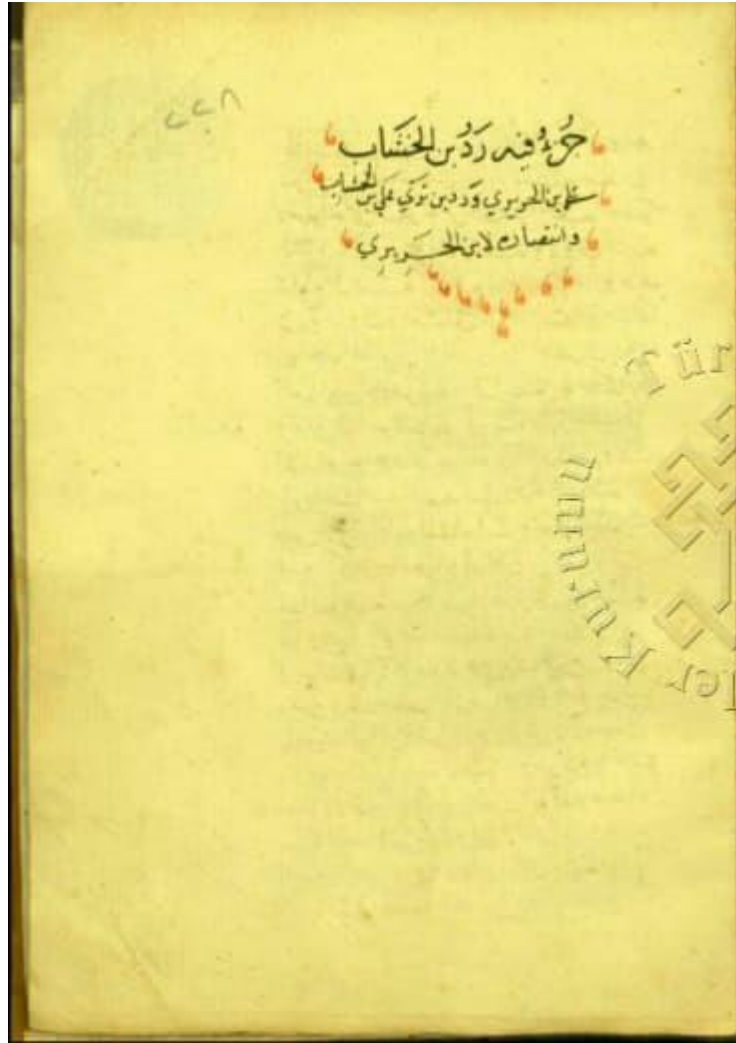 ٢٢٨
جُزءٌ فيه رَدُّ بن الخشّاب
على بن الحريري وَرد بن بَرّي عَلى بن الخشّاب
وانتصاره لابن الحَريرِي